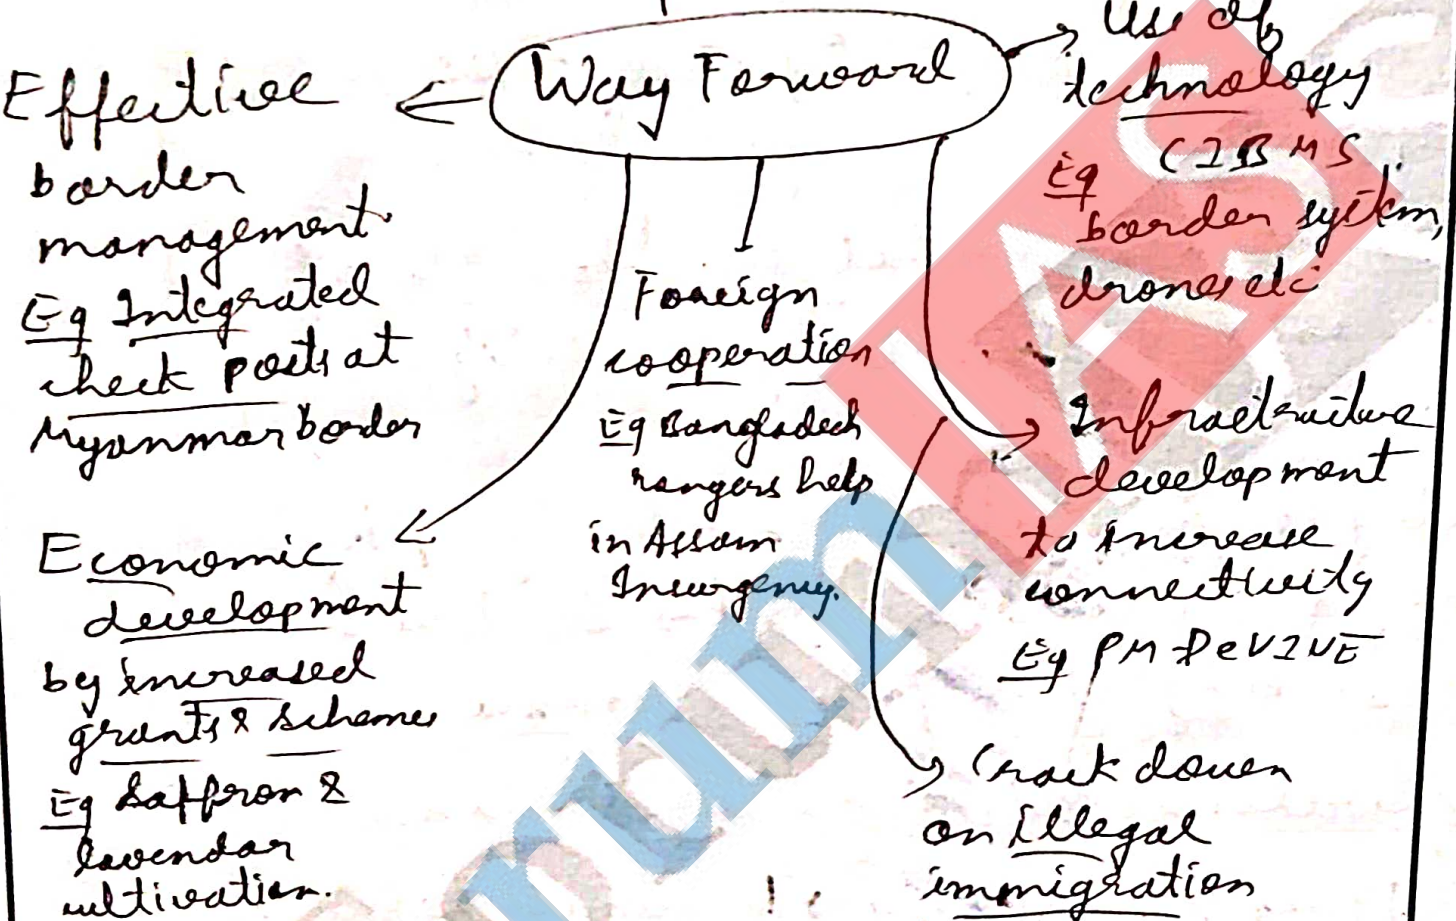 Way Forward
Effective
border
management
Eg Integrated
check posts at
Myanmar border
Economic
development
by increased
grants & schemes
Eg Saffron &
lavendar
cultivation.
Foreign
cooperation
Eg Bangladesh
rangers help
in Assam
Insurgency.
Use of
technology
Eg CIBMS
border system,
drones etc
Infrastructure
development
to increase
connectivity
Eg PM DeVINE
Crack down
on illegal
immigration
rum IAS